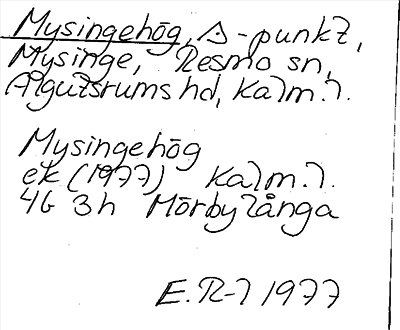 Mysingehög, △-punkt,
Mysinge, Resmo sn,
Algutsrums hd, Kalm.l.
Mysingehög
ek (1977) Kalm.l.
4G 3h Mörbylånga
E.R-l 1977